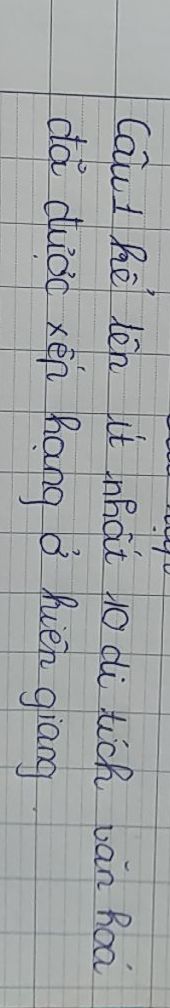 Câu 1 kể tên ít nhất 10 di tích văn hoá
đã được xếp hạng ở kiên giang